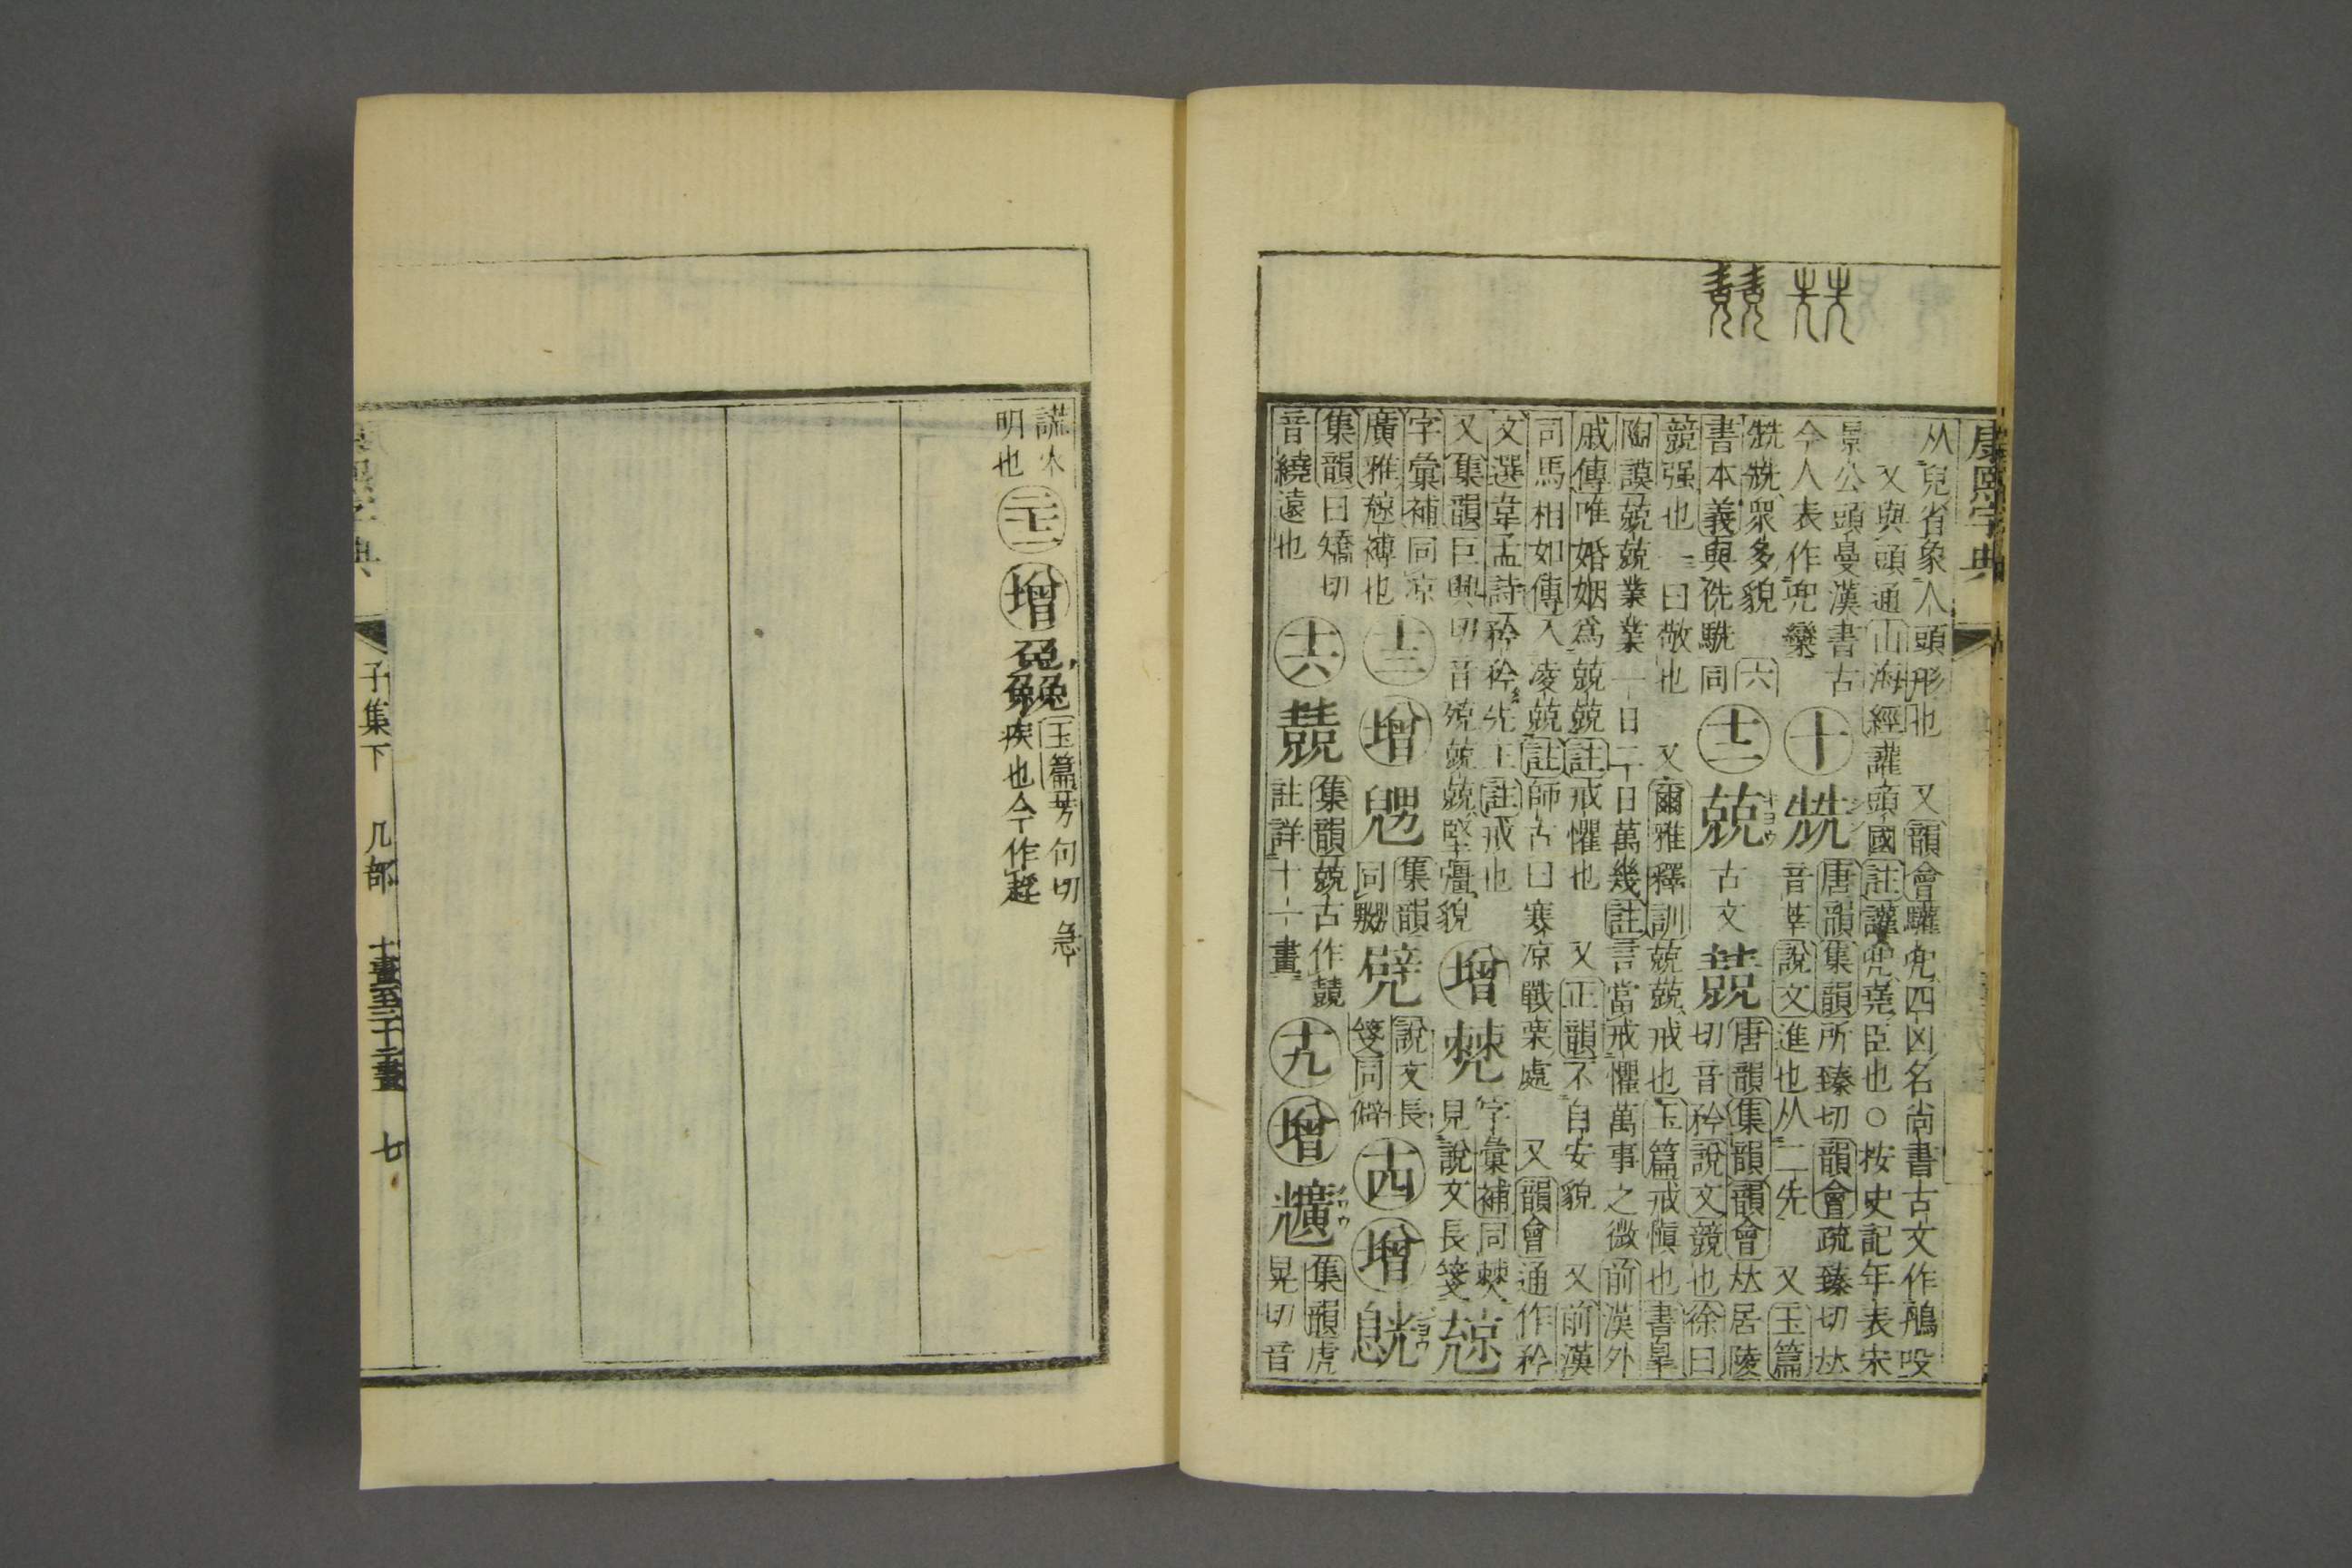 康熙字典
从兒省象人頭形也　又韻會驩兜四凶名尚書古文作鴅吺
又與頭通山海經讙頭國註讙兜堯臣也○按史記年表宋
景公頭曼漢書古
今人表作兜欒
十
兟
唐韻集韻所臻切韻會疏臻切𠀤
音莘說文進也从二先　又玉篇
兟兟衆多貌　六
書本義與侁駪同
十二
兢
古文
𠓗
唐韻集韻韻會𠀤居陵
切音矜說文競也徐曰
競强也一曰敬也　又爾雅釋訓兢兢戒也玉篇戒愼也書臯
陶謨兢兢業業一日二日萬幾註言當戒懼萬事之微　前漢外
戚傳唯婚姻爲兢兢註戒懼也　又正韻不自安貌　又前漢
司馬相如傳入凌兢註師古曰寒凉戰栗處　又韻會通作矜
文選韋孟詩矜矜先王註戒也
又集韻巨興切音殑兢兢堅彊貌
增
字彙補同
見說文長箋
字彙補同凉
廣雅䘐也
十三
增
集韻
同
說文長
箋同僻
十四
增
集韻曰矯切
音繞遠也
十六
𠓗
集韻兢古作
註詳十二畫
十九
增
集韻虎
晃切音
謊
明也
二十二
增
玉篇芳句切急
疾也今作趕
子集下　儿部　七